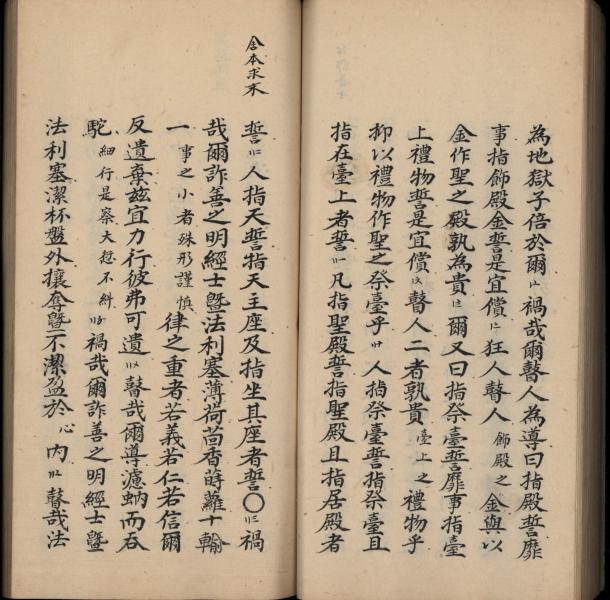 為地獄子倍於爾〡禍哉爾瞽人為導曰指殿誓靡
事指飾殿金誓是宜償〡狂人瞽人飾殿之金與以
金作聖之殿孰為貴〡爾又曰指祭臺誓靡事指臺
上禮物誓是宜償〡瞽人二者孰貴臺上之禮物乎
抑以禮物作聖之祭臺乎〡人指祭臺誓指祭臺且
指在臺上者誓〡凡指聖殿誓指聖殿且指居殿者
誓〡人指天誓指天主座及指坐其座者誓〇禍
舍本求末
哉爾詐善之明經士曁法利塞薄荷茴香蒔蘿十輸
一事之小者殊形謹慎律之重者若義若仁若信爾
反遺棄茲宜力行彼弗可遺〡瞽哉爾導濾蚋而吞
駝細行是察大愆不糾〡禍哉爾詐善之明經士曁
法利塞潔杯盤外攘奪曁不潔盈於心內〡瞽哉法